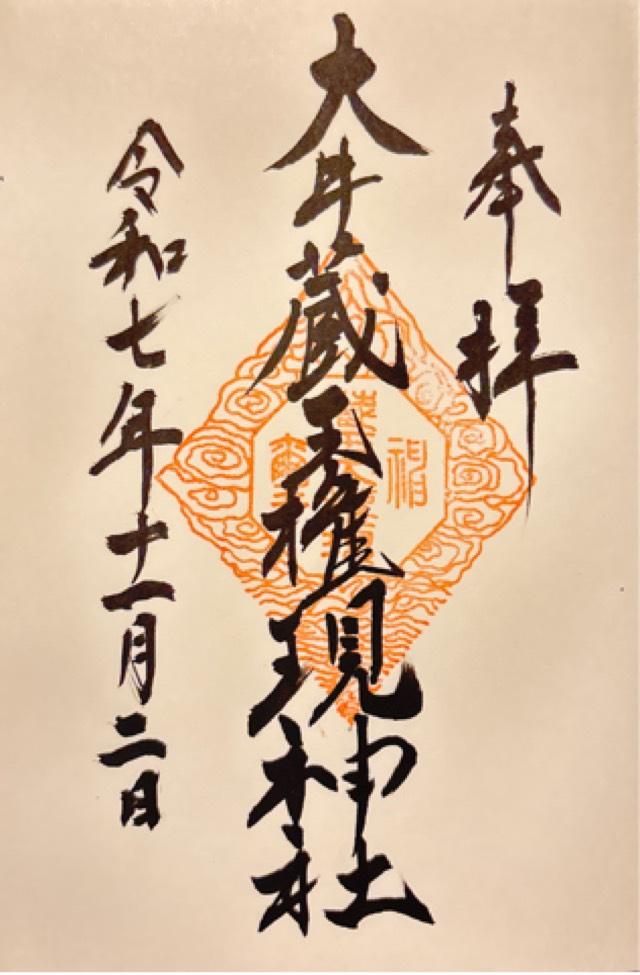 奉拝
大井蔵王権現神社
令和七年十一月二日